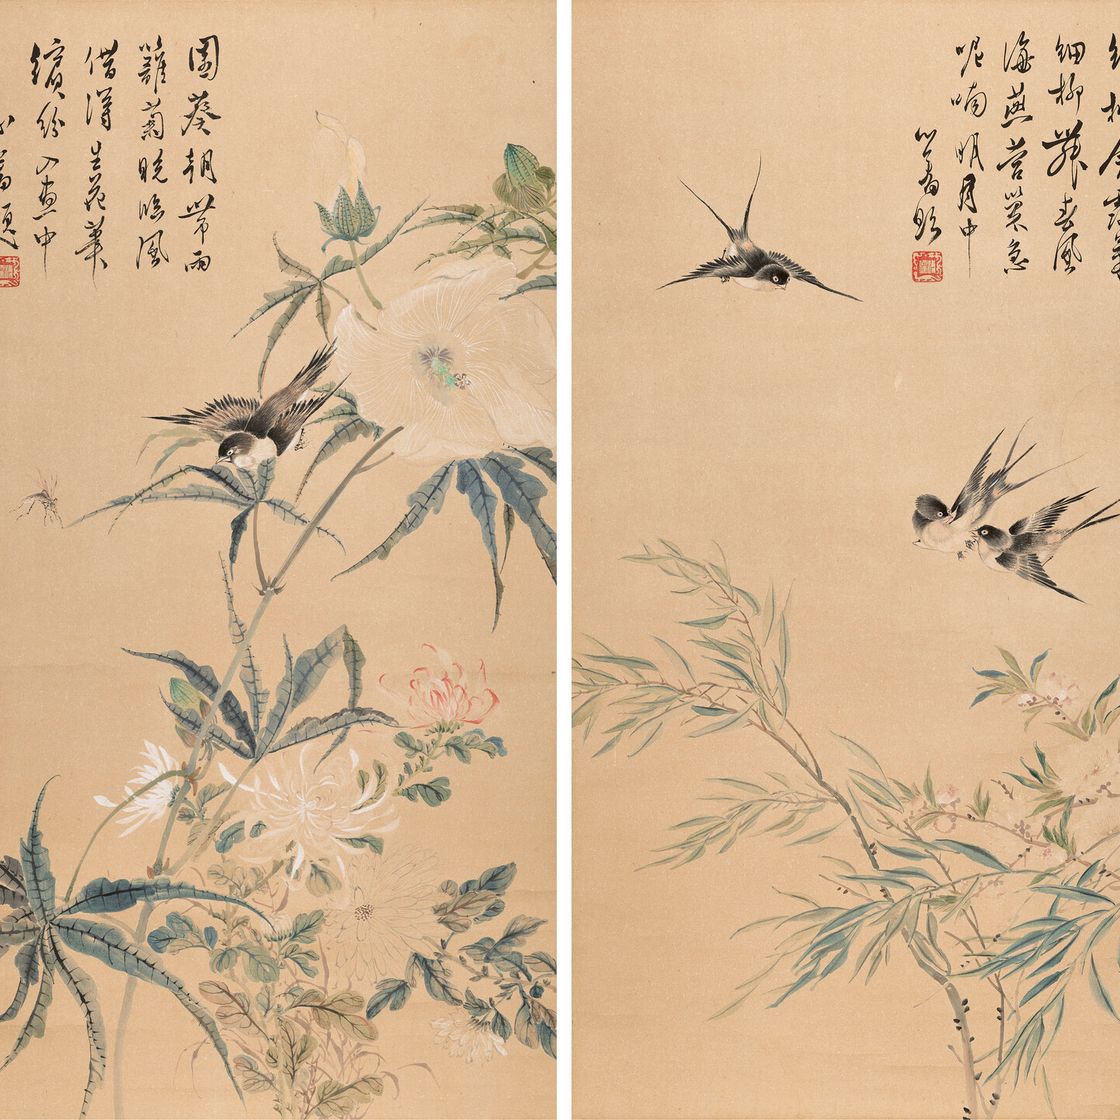 園葵朝帶雨
籬菊晚臨風
借得生花筆
繽紛入畫中
心畬題
細柳舞春風
海燕營巢急
呢喃明月中
心畬